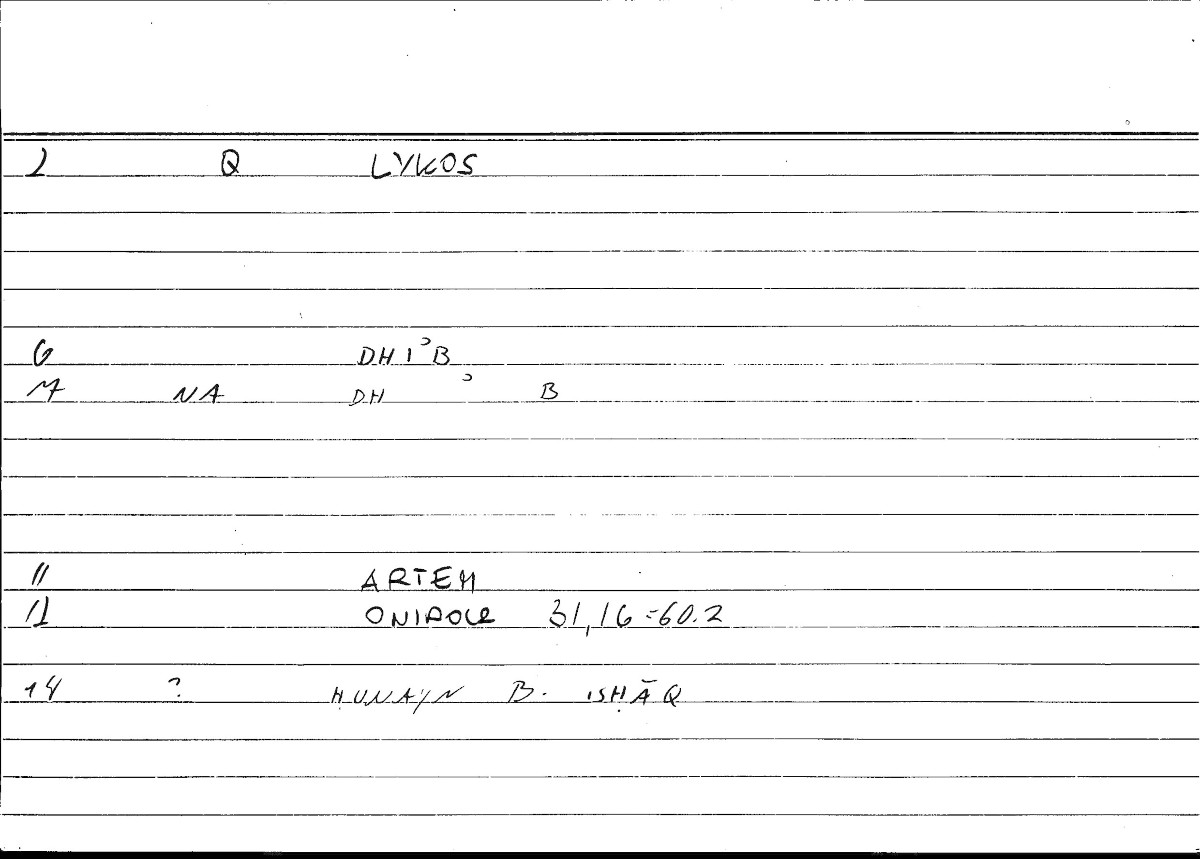 2 Q LYKOS
6 DHIʾB
7 NA DH ʾ B
11 ARTEM
12 ONIROCR 31,16=60.2
14 ? ḤUNAYN B. ISḤĀQ